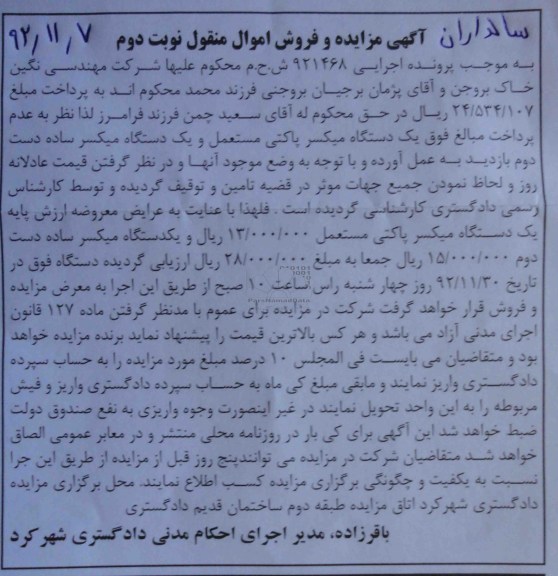 سالداران
۹۲/۱۱/۷
آگهی مزایده و فروش اموال منقول نوبت دوم
به موجب پرونده اجرایی ۹۲۱۴۶۸ ش.ح.م محکوم علیها شرکت مهندسی نگین
خاک بروجن و آقای پژمان برجیان بروجنی فرزند محمد محکوم اند به پرداخت مبلغ
۲۴/۵۳۴/۱۰۷ ریـال در حق محکوم له آقای سـعید چمن فرزند فرامـرز لذا نظر به عدم
پرداخت مبالغ فوق یک دستگاه میکسر پاکتی مستعمل و یک دستگاه میکسر ساده دست
دوم بازدیـد بـه عمل آورده و با توجه به وضع موجود آنهـا و در نظر گرفتن قیمت عادلانه
روز و لحاظ نمودن جمیع جهات موثر در قضیه تامین و توقیف گردیده و توسط کارشناس
رسمی دادگستری کارشناسی گردیده است . فلهذا با عنایت به عرایض معروضه ارزش پایه
یک دسـتگاه میکسر پاکتی مستعمل ۱۳/۰۰۰/۰۰۰ ریال و یکدستگاه میکسر ساده دست
دوم ۱۵/۰۰۰/۰۰۰ ریال جمعا به مبلغ ۲۸/۰۰۰/۰۰۰ ریال ارزیابی گردیده دستگاه فوق در
تاریخ ۹۲/۱۱/۳۰ روز چهار شنبه راس ساعت ۱۰ صبح از طریق این اجرا به معرض مزایده
و فروش قرار خواهد گرفت شرکت در مزایده برای عموم با مدنظر گرفتن ماده ۱۲۷ قانون
اجرای مدنی آزاد می باشد و هر کس بالاترین قیمت را پیشنهاد نماید برنده مزایده خواهد
بود و متقاضیان می بایست فی المجلس ۱۰ درصد مبلغ مورد مزایده را به حساب سپرده
دادگستری واریز نمایند و مابقی مبلغ کی ماه به حسـاب سپرده دادگستری واریز و فیش
مربوطه را به این واحد تحویل نمایند در غیر اینصورت وجوه واریزی به نفع صندوق دولت
ضبط خواهد شد این آگهی برای کی بار در روزنامه محلی منتشر و در معابر عمومی الصاق
خواهد شـد متقاضیان شرکت در مزایده می توانندپنج روز قبل از مزایده از طریق این جرا
نسبت به یکفیت و چگونگی برگزاری مزایده کسـب اطلاع نمایند. محل برگزاری مزایده
دادگستری شهرکرد اتاق مزایده طبقه دوم ساختمان قدیم دادگستری
باقرزاده، مدیر اجرای احکام مدنی دادگستری شهر کرد